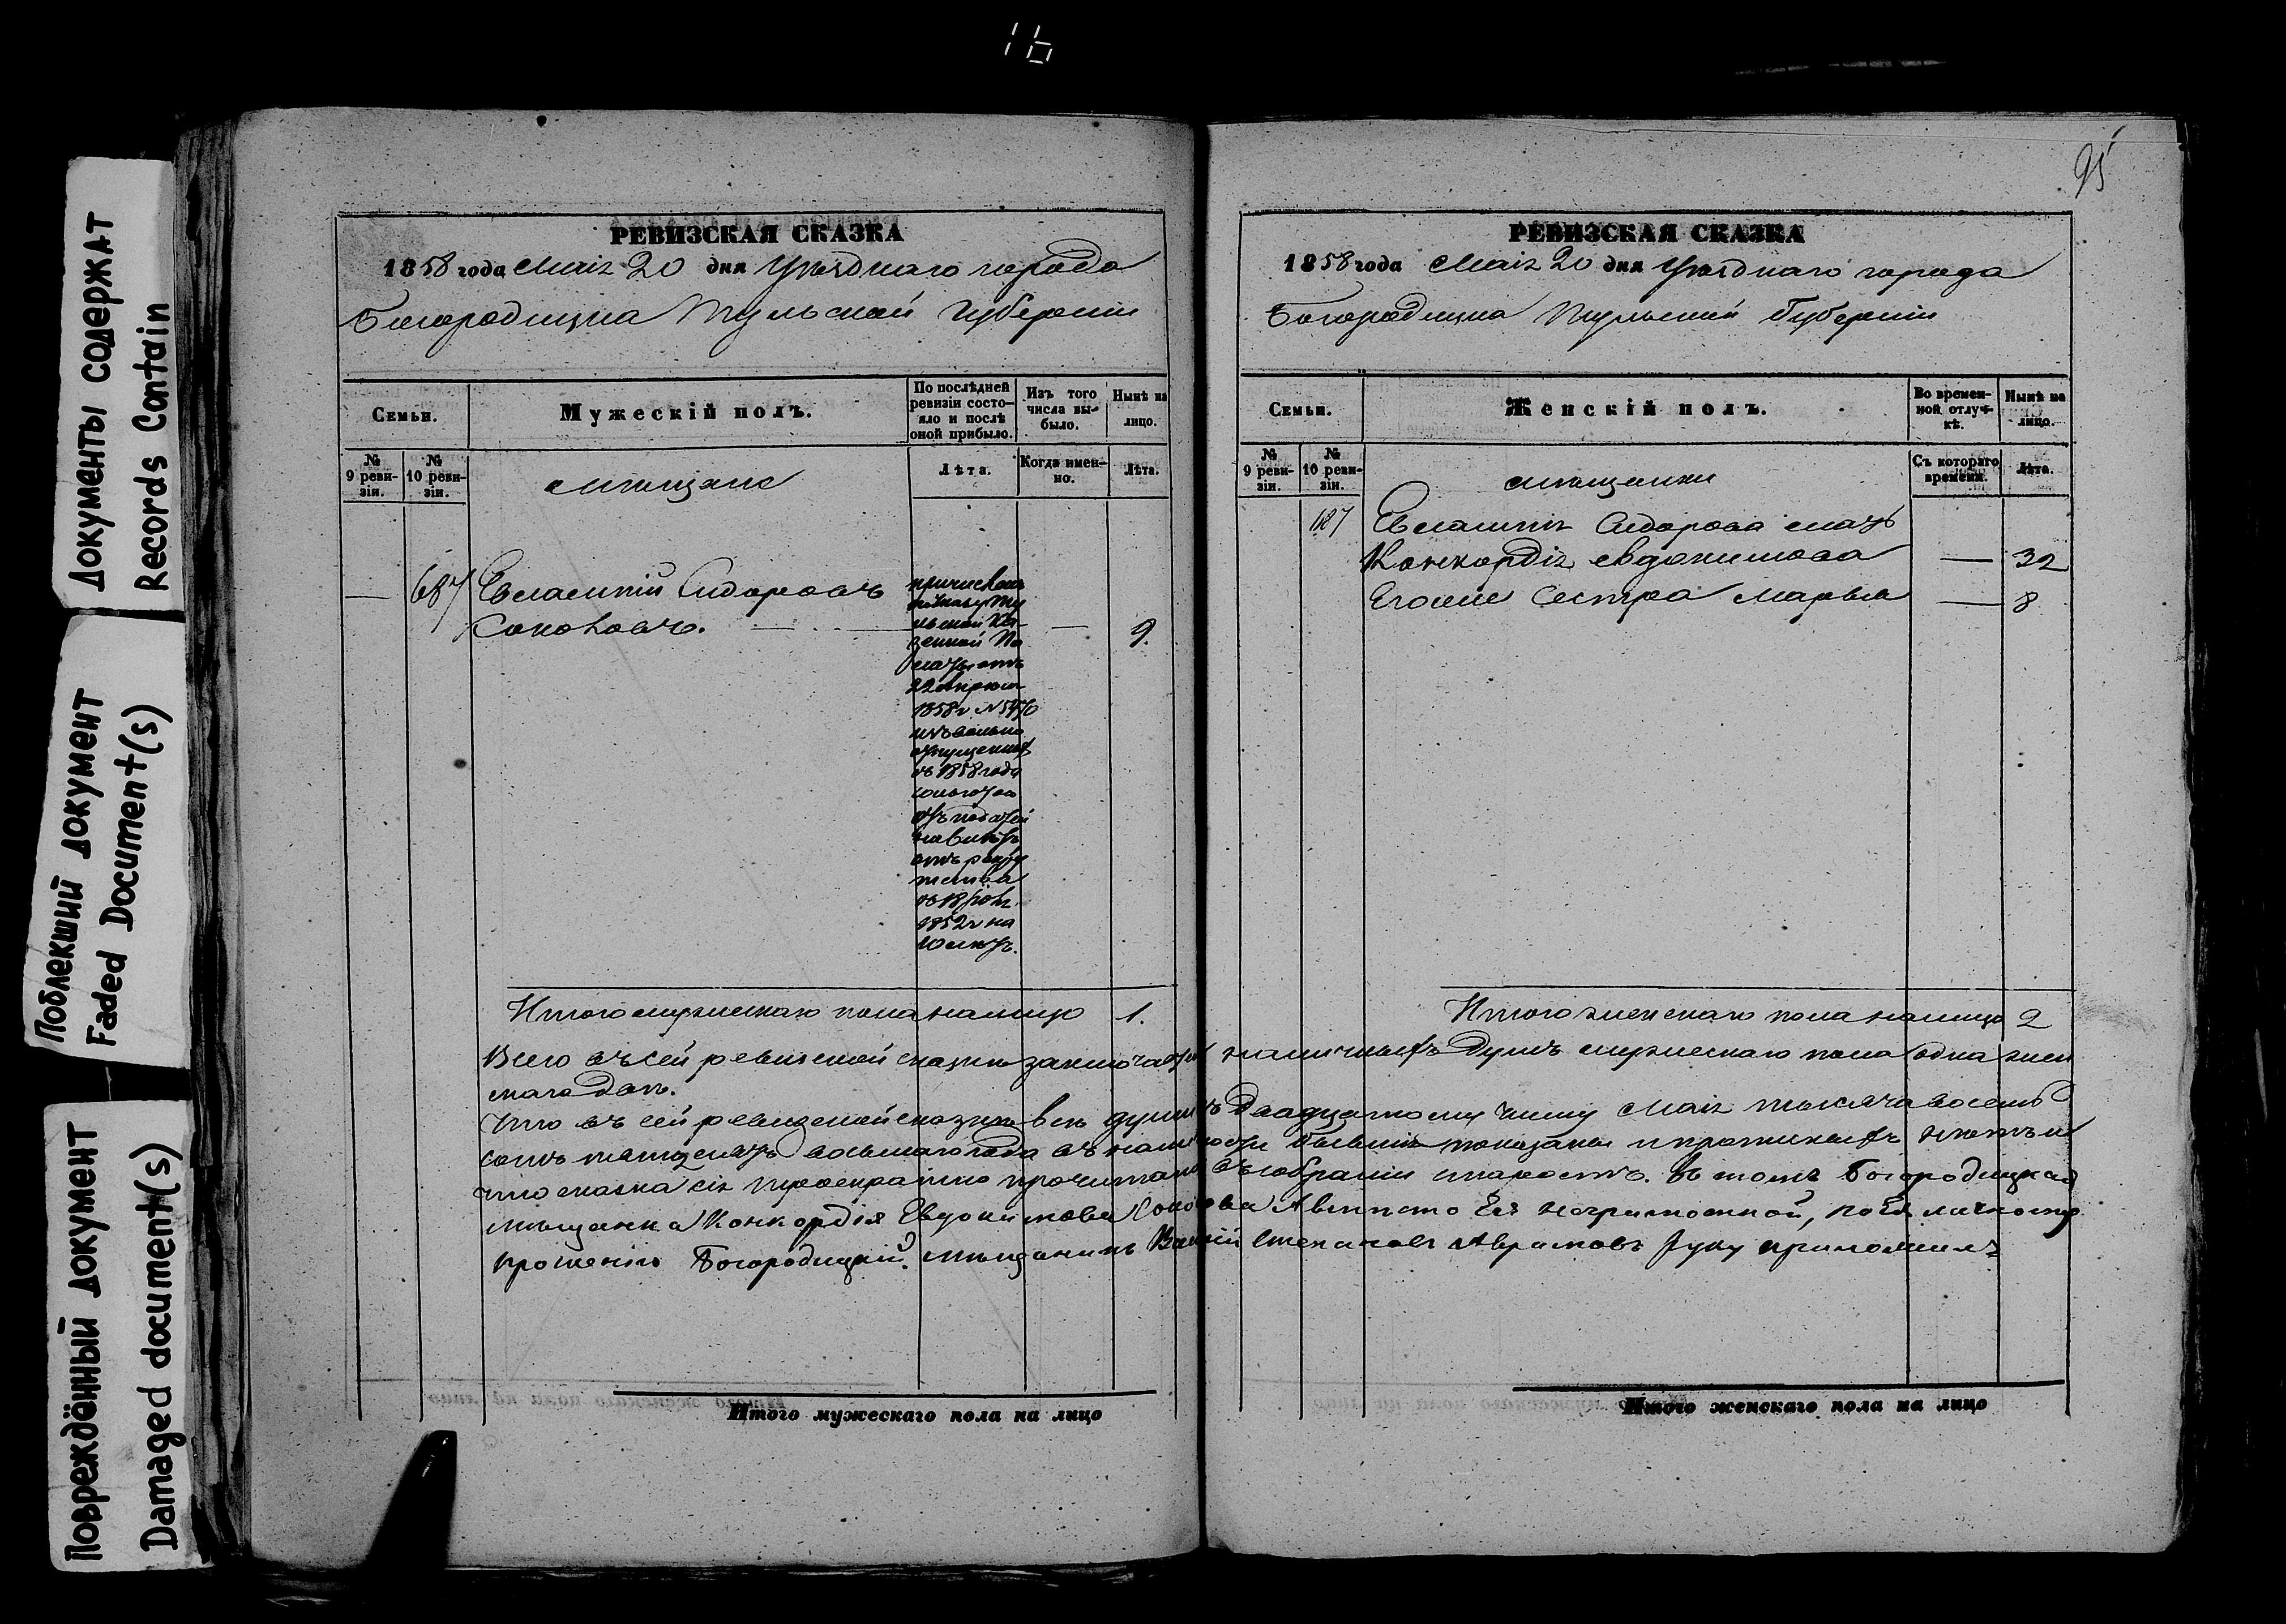 16
95
Документы содержат
Records Contain
Поблекший документ
Faded Document(s)
Повреждённый документ
Damaged document(s)
РЕВИЗСКАЯ СКАЗКА
1858 года Маія 20 дня Уѣзднаго города
Богородицка Тульской Губерніи
Семьи.
Мужескій полъ.
По послѣдней
ревизіи состо-
яло и послѣ
оной прибыло.
Изъ того
числа вы-
было.
Нынѣ на
лицо.
№
9 реви-
зіи.
№
10 реви-
зіи.
мѣщане
Лѣта.
Когда имен-
но.
Лѣта.
— 687 Евлампій Сидоровъ
Соколовъ. — — 9.
причисленъ
по указу Ту
льской Ка-
зенной Па
латы отъ
22 апреля
1858 г №5470
изъ вольно
отпущенныхъ
съ 1858 года
отъ податей
отъ рекру
тства
1852 г на
Итого мужескаго пола налицо 1.
РЕВИЗСКАЯ СКАЗКА
1858 года Маія 20 дня Уѣзднаго города
Богородицка Тульской Губерніи
Семьи.
Женскій полъ.
Во времен-
ной отлуч-
кѣ.
Нынѣ на
лицо.
№
9 реви-
зіи.
№
10 реви-
зіи.
мѣщанки
Съ котораго
времени.
Лѣта.
687 Евлампія Сидорова мать
Конкордія Евдокимова — 32
Его же Сестра Марья — 8
Итого женскаго пола налицо 2
Всего въ сей ревизской сказкѣ заключается наличныхъ душъ мужескаго пола одна жен
скаго двѣ.
Что въ сей ревизской сказкѣ всѣ души къ двадцатому числу Маія тысяча восемь
сотъ пятдесятъ восьмаго года въ наличности бывшія показаны и прописныхъ нѣтъ и
что сказка сія троекратно прочитана въ собраніи старостъ. Въ томъ Богородицкая
мѣщанка Конкордія Евдокимова Соколова А вмѣсто Ея неграмотной, по Ея личному
прошенію Богородицкій мѣщанинъ Степановъ Аврамовъ руку приложилъ
Итого мужескаго пола на лицо
Итого женскаго пола на лицо